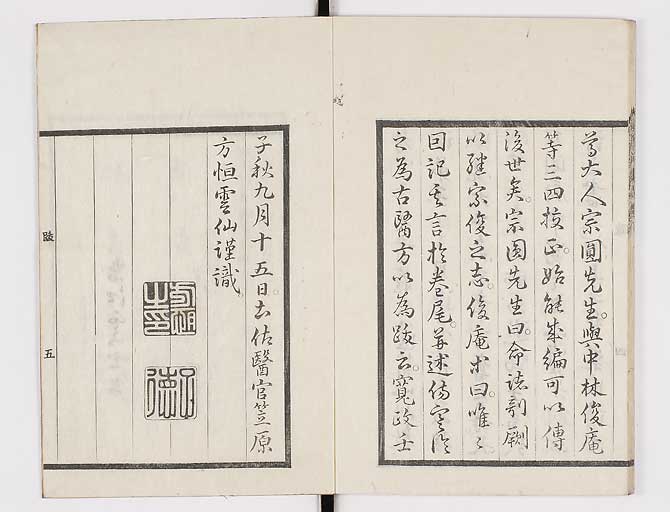 尊大人宗圓先生。與中林俊庵
等三四挍正。始能成編可以傳
後世矣。宗圓先生曰。命諸剞劂
以繼宗俊之志。俊庵求曰。唯〻
回記其言於卷尾。并述傷寒論
之為古醫方以為跋云。寛政壬
子秋九月十五日土佐醫官笠原
方恒雲仙謹識
跋
五